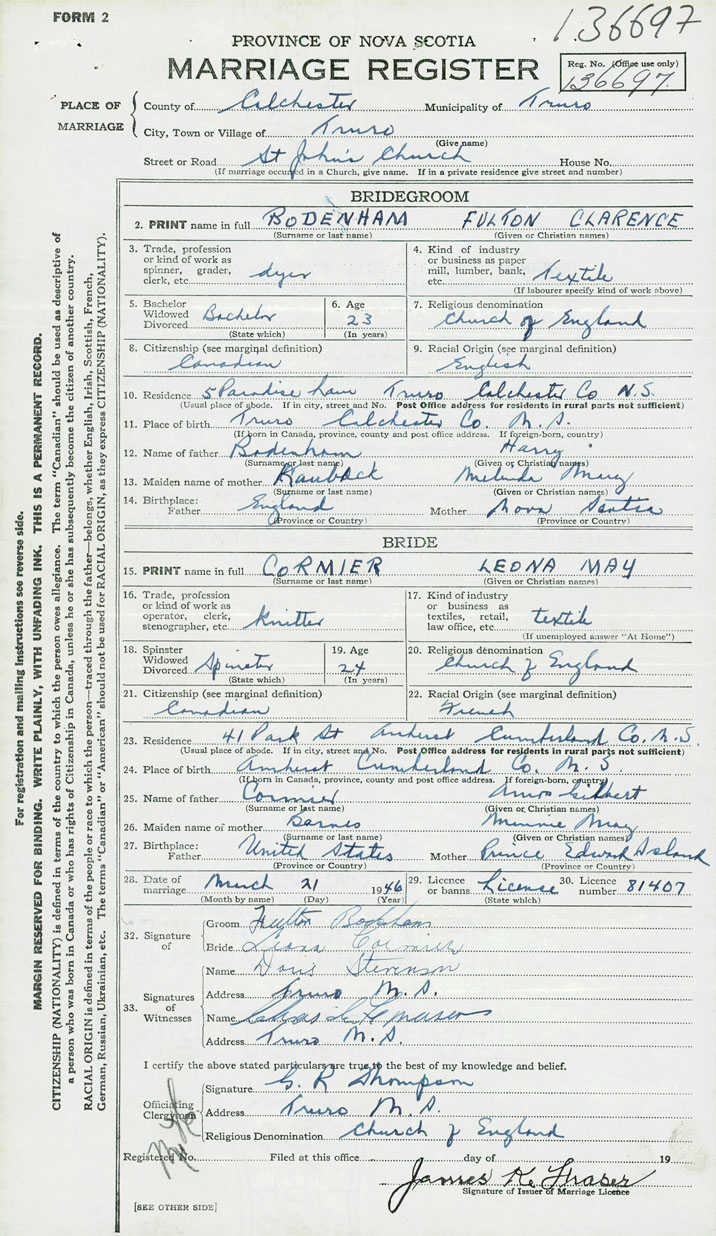 FORM 2
136697
PROVINCE OF NOVA SCOTIA
MARRIAGE REGISTER
Reg. No. (Office use only)
136697.
PLACE OF MARRIAGE
County of Colchester Municipality of Truro
City, Town or Village of Truro
(Give name)
Street or Road St John's Church House No.
(If marriage occurred in a Church, give name. If in a private residence give street and number)
BRIDEGROOM
2. PRINT name in full BODENHAM FULTON CLARENCE
(Surname or last name) (Given or Christian names)
3. Trade, profession or kind of work as spinner, grader, clerk, etc. dyer
4. Kind of industry or business as paper mill, lumber, bank, etc. Textile
(If labourer specify kind of work above)
5. Bachelor Widowed Divorced Bachelor
(State which)
6. Age 23
(In years)
7. Religious denomination
Church of England
8. Citizenship (see marginal definition)
Canadian
9. Racial Origin (see marginal definition)
English
10. Residence 5 Paradise Lane Truro Colchester Co N.S.
(Usual place of abode. If in city, street and No. Post Office address for residents in rural parts not sufficient)
11. Place of birth Truro Colchester Co. N.S.
(If born in Canada, province, county and post office address. If foreign-born, country)
12. Name of father Bodenham Harry
(Surname or last name) (Given or Christian names)
13. Maiden name of mother Melinda Mary
(Surname or last name) (Given or Christian names)
14. Birthplace: Father England Mother Nova Scotia
(Province or Country) (Province or Country)
BRIDE
15. PRINT name in full CORMIER LEONA MAY
(Surname or last name) (Given or Christian names)
16. Trade, profession or kind of work as operator, clerk, stenographer, etc. Knitter
17. Kind of industry or business as textiles, retail, law office, etc. textile
(If unemployed answer "At Home")
18. Spinster Widowed Divorced Spinster
(State which)
19. Age 24
(In years)
20. Religious denomination
Church of England
21. Citizenship (see marginal definition)
Canadian
22. Racial Origin (see marginal definition)
French
23. Residence 41 Park St Amherst Cumberland Co. N.S.
(Usual place of abode. If in city, street and No. Post Office address for residents in rural parts not sufficient)
24. Place of birth Amherst Cumberland Co. N.S.
(If born in Canada, province, county and post office address. If foreign-born, country)
25. Name of father Cormier Amos Gilbert
(Surname or last name) (Given or Christian names)
26. Maiden name of mother Barnes Minnie May
(Surname or last name) (Given or Christian names)
27. Birthplace: Father United States Mother Prince Edward Island
(Province or Country) (Province or Country)
28. Date of marriage March 21 1946
(Month by name) (Day) (Year)
29. Licence or banns License
(State which)
30. Licence number 81407
32. Signature of
Groom Fulton Bodenham
Bride Leona Cormier
33. Signatures of Witnesses
Name Doris Stevenson
Address Truro N.S.
Name
Address Truro N.S.
I certify the above stated particulars are true to the best of my knowledge and belief.
Officiating Clergyman
Signature G. R Thompson
Address Truro N.S.
Religious Denomination Church of England
Registered No. Filed at this office day of 19
James K. Fraser
Signature of Issuer of Marriage Licence
[SEE OTHER SIDE]
For registration and mailing instructions see reverse side.
MARGIN RESERVED FOR BINDING. WRITE PLAINLY, WITH UNFADING INK. THIS IS A PERMANENT RECORD.
CITIZENSHIP (NATIONALITY) is defined in terms of the country to which the person owes allegiance. The term "Canadian" should be used as descriptive of
a person who was born in Canada or who has rights of Citizenship in Canada, unless he or she has subsequently become the citizen of another country.
RACIAL ORIGIN is defined in terms of the people or race to which the person—traced through the father—belongs, whether English, Irish, Scottish, French,
German, Russian, Ukrainian, etc. The terms "Canadian" or "American" should not be used for RACIAL ORIGIN, as they express CITIZENSHIP (NATIONALITY).